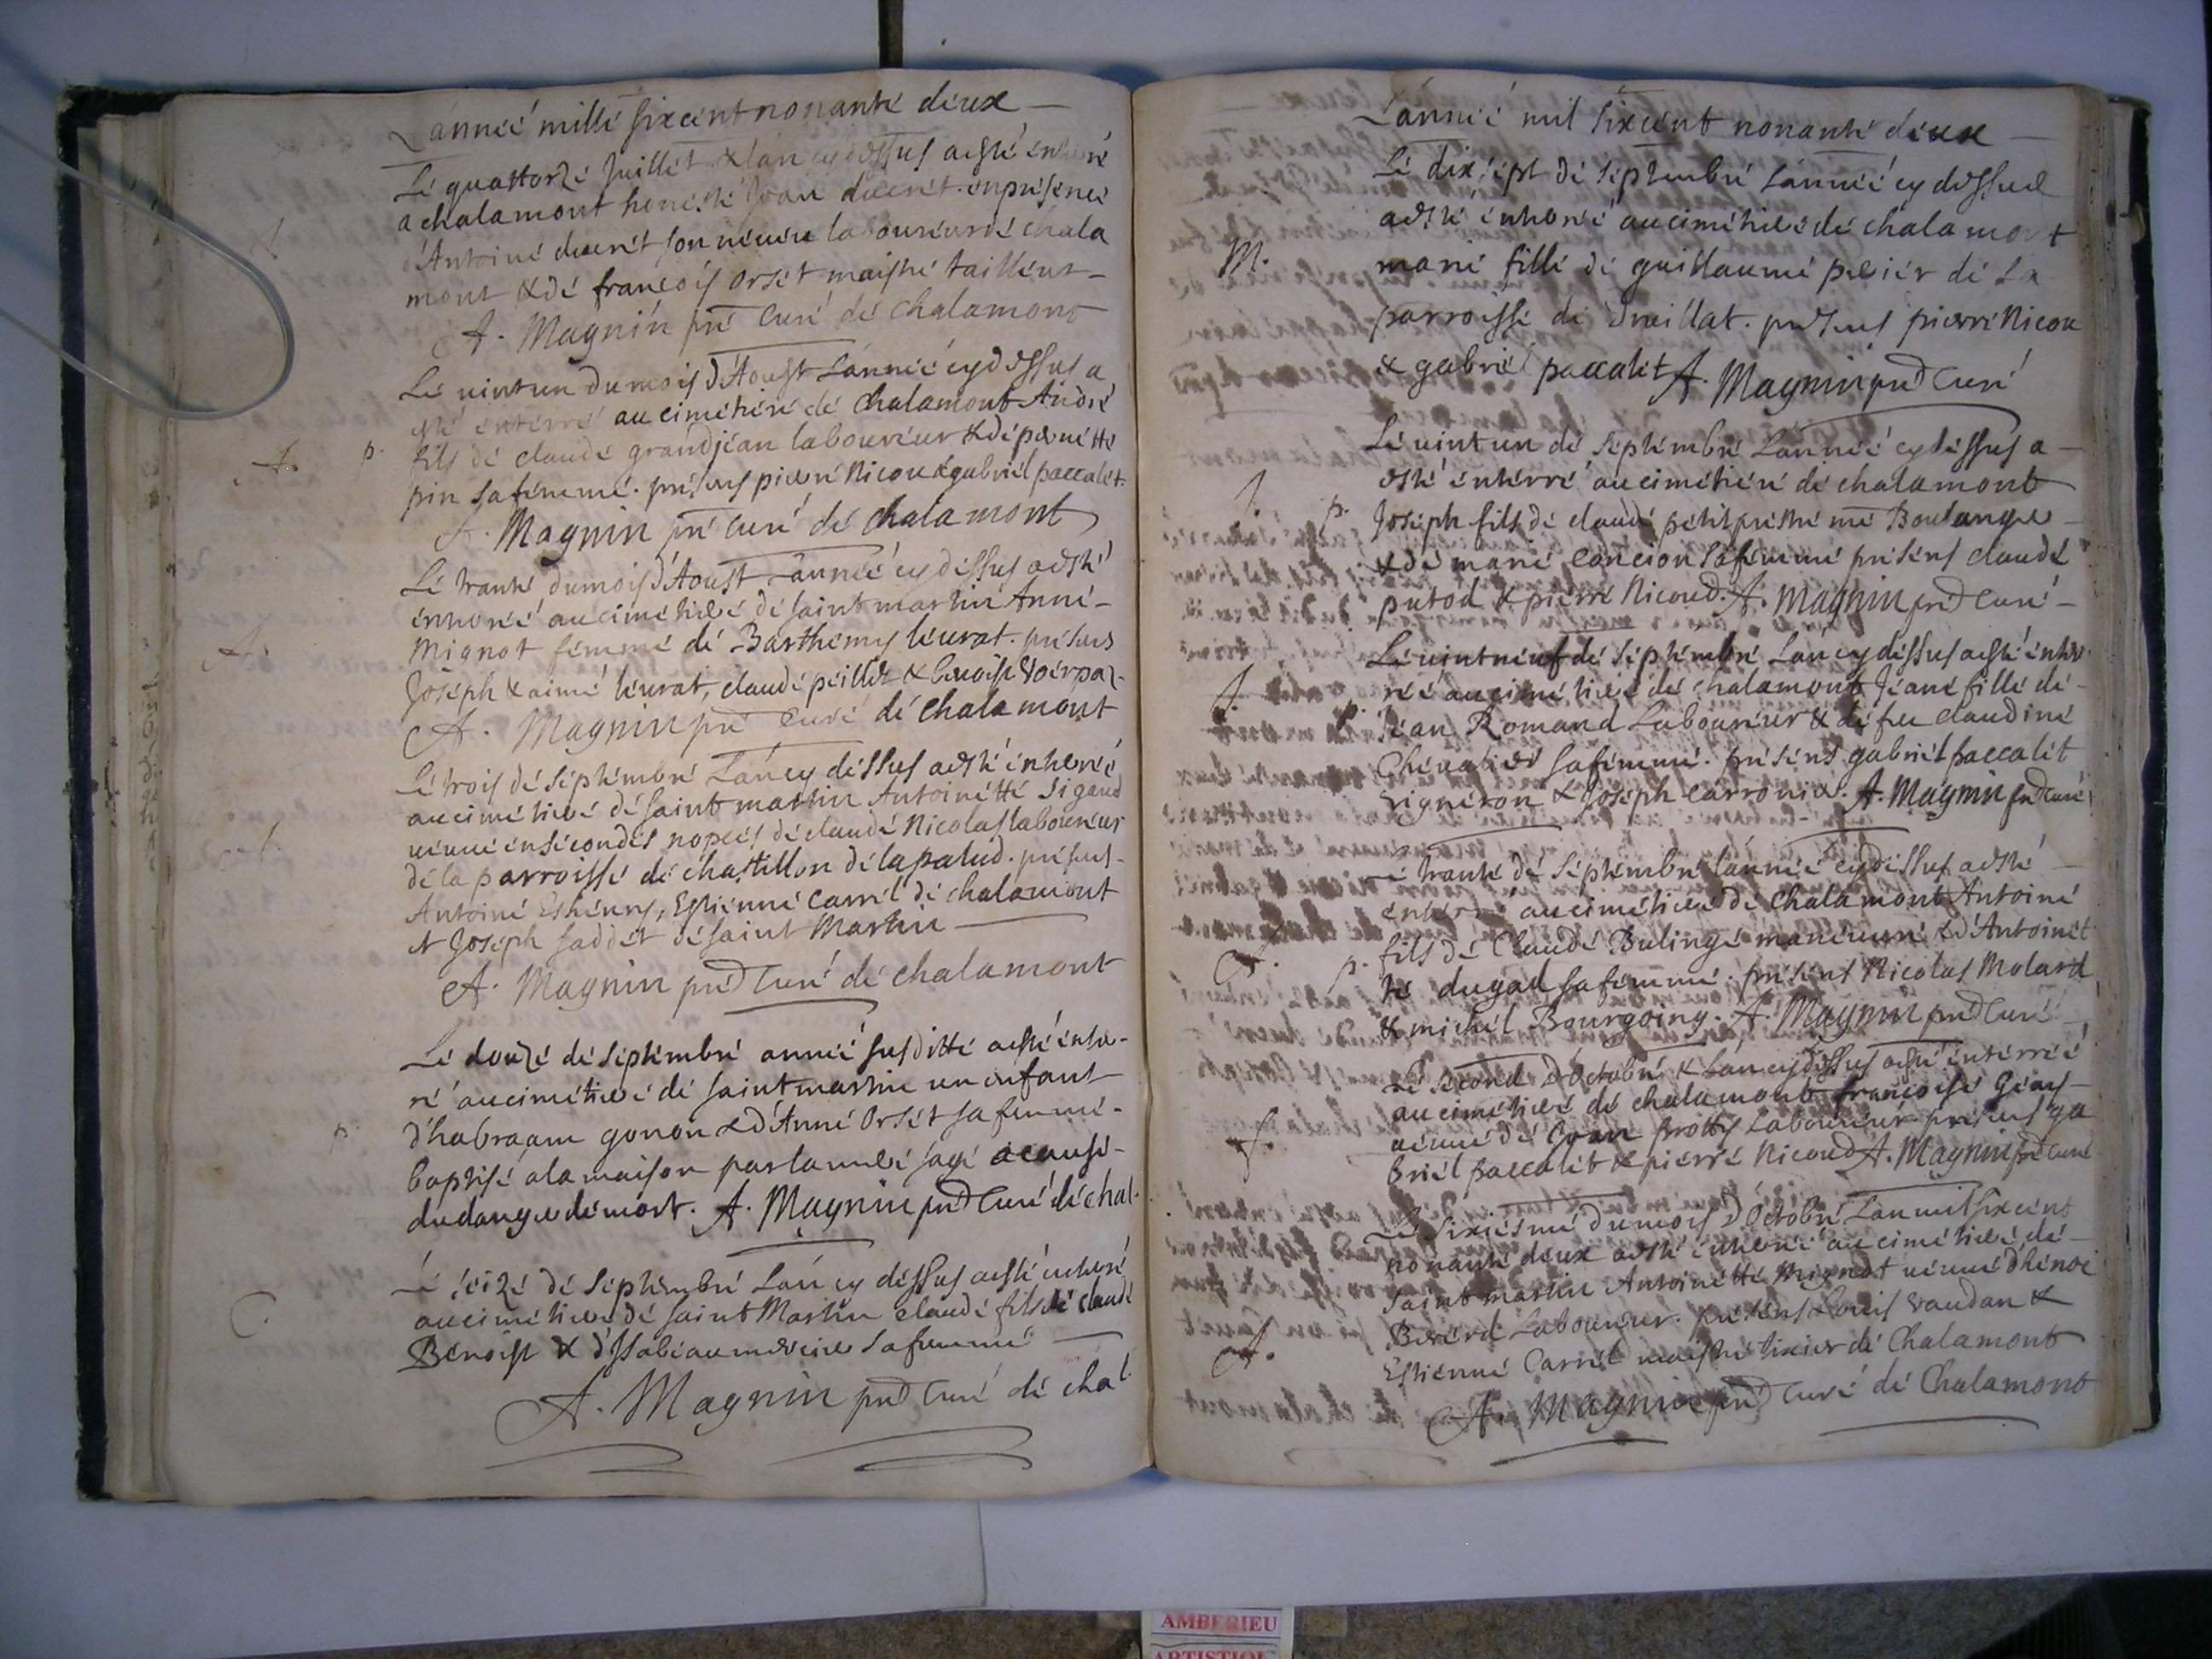 L'année mille six cent nonante deux —
Le quattorze Juillet & lan cy dessus a esté enterré
J.
a chalamont honeste Jean ducret en presence
d'Antoine ducret son neveu laboureur de chala
mont & de françois Orset maistre tailleur —
A. Magnin pre Curé de Chalamont
Le vint un du mois d'Aoust L'année cy dessus a
esté enterré au cimetiere de Chalamont André
A. p. fils de claude grandjean laboureur & de pernette
pin sa femme. presens pierre Nicou & gabriel paccalet.
A. Magnin pre Curé de chalamont
Le trante du mois d'Aoust L'année cy dessus a esté
enterrée au cimetiere de saint martin Anne —
A. Mignot femme de Barthemy leurat. presens
Joseph & aimé leurat, claude peillet & benoist
A. Magnin pre Curé de Chalamont
Le trois de septembre L'an cy dessus a esté enterrée
au cimetiere de saint martin Antoinette Sigaud
A. veuve en secondes nopces de claude Nicolas laboureur
de la parroisse de chastillon de la palud. presens —
Antoine Esthieny, Estienne Carrel de chalamont
et Joseph saddet de saint Martin —
A. Magnin pre Curé de chalamont
Le douze de septembre année susditte a esté enter-
ré au cimetiere de saint martin un enfant
p. d'habraam gonon & d'Anne Orset sa femme —
baptisé a la maison par la mere sage a cause —
du danger de mort. A. Magnin pre Curé de chal.
Le seize de septembre L'an cy dessus a esté enterré
C. au cimetiere de saint Martin claude fils de claude
Benoist & d'Isabeau mercier sa femme —
A. Magnin pre Curé de chal.
L'année mil six cent nonante deux —
Le dix sept de septembre L'année cy dessus
a esté enterrée au cimetiere de chalamont
M. marie fille de guillaume perier de la
parroisse de Druillat. presens pierre Nicou
& gabriel paccalet A. Magnin pre Curé
Le vint un de septembre L'année cy dessus a —
esté enterré au cimetiere de chalamont
J. p. Joseph fils de claude petit prestre me Boulanger —
& de marie cancion sa femme presens claude
putod & pierre Nicoud. A. Magnin pre Curé —
Le vint neuf de septembre L'an cy dessus a esté enter
J. p. rée au cimetiere de chalamont Jeane fille de —
Jean Romand Laboureur & de feu claudine
Chevalier sa femme. presens gabriel paccalet
vigneron & Joseph carronier. A. Magnin pre Curé
Le trante de septembre l'année cy dessus a esté —
enterré au cimetiere de Chalamont Antoine
A. p. fils de Claude Bulinge maneuvre & d'Antoinet
te dugad sa femme. presens Nicolas Molard
& michel Bourgoing. A. Magnin pre Curé —
Le second d'Octobre & L'an cy dessus a esté enterrée
au cimetiere de chalamont françoise Geay —
f. veuve de Jean prost Laboureur presens ga
briel paccalet & pierre Nicoud A. Magnin pre Curé
Le sixiesme du mois d'Octobre L'an mil six cent
nonante deux a esté enterrée au cimetiere de —
saint martin Antoinette Mignot veuve d'henoc
A. Berérd Laboureur. presens Louis vaudan &
Estienne Carrel maistre tixier de Chalamont
A. Magnin pre Curé de Chalamont
AMBERIEU